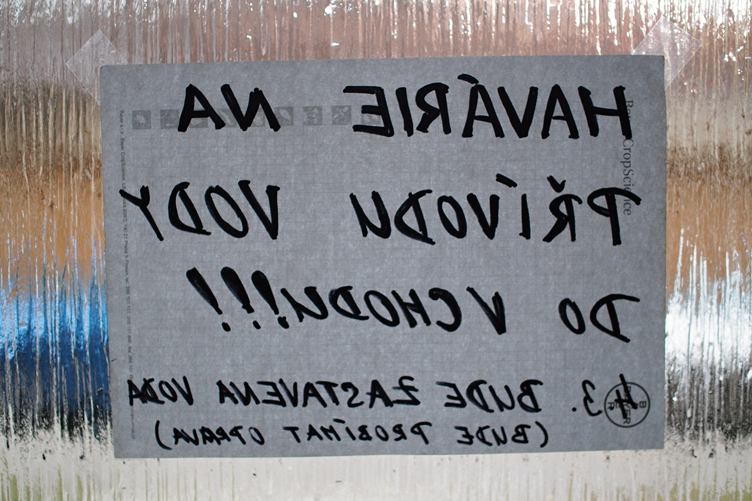 HAVÁRIE NA
PŘÍVODU VODY
DO VCHODU!!!!
3. BUDE ZASTAVENA VODA
(BUDE PROBÍHAT OPRAVA)
CropScience